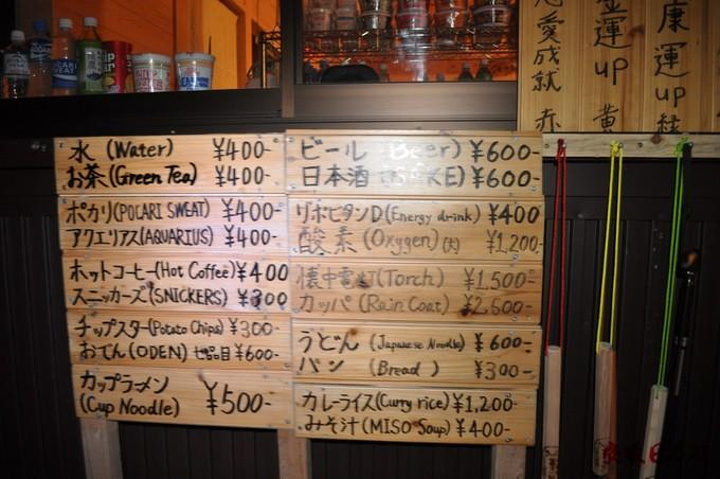 水 (Water) ¥400-
お茶 (Green Tea) ¥400-
ポカリ (POCARI SWEAT) ¥400-
アクエリアス (AQUARIUS) ¥400-
ホットコーヒー (Hot Coffee) ¥400
スニッカーズ (SNICKERS) ¥300
チップスター (Potato Chips) ¥300-
おでん (ODEN) 七品目 ¥600-
カップラーメン
(Cup Noodle) ¥500-
ビール (Beer) ¥600-
日本酒 (SAKE) ¥600-
リポビタンD (Energy drink) ¥400
酸素 (Oxygen) (大) ¥1,200-
懐中電灯 (Torch) ¥1,500-
カッパ (Rain Coat) ¥2,500-
うどん (Japanese Noodle) ¥600-
パン (Bread) ¥300-
カレーライス (Curry rice) ¥1,200-
みそ汁 (MISO Soup) ¥400-
恋愛成就 赤
金運up 黄
健康運up 緑